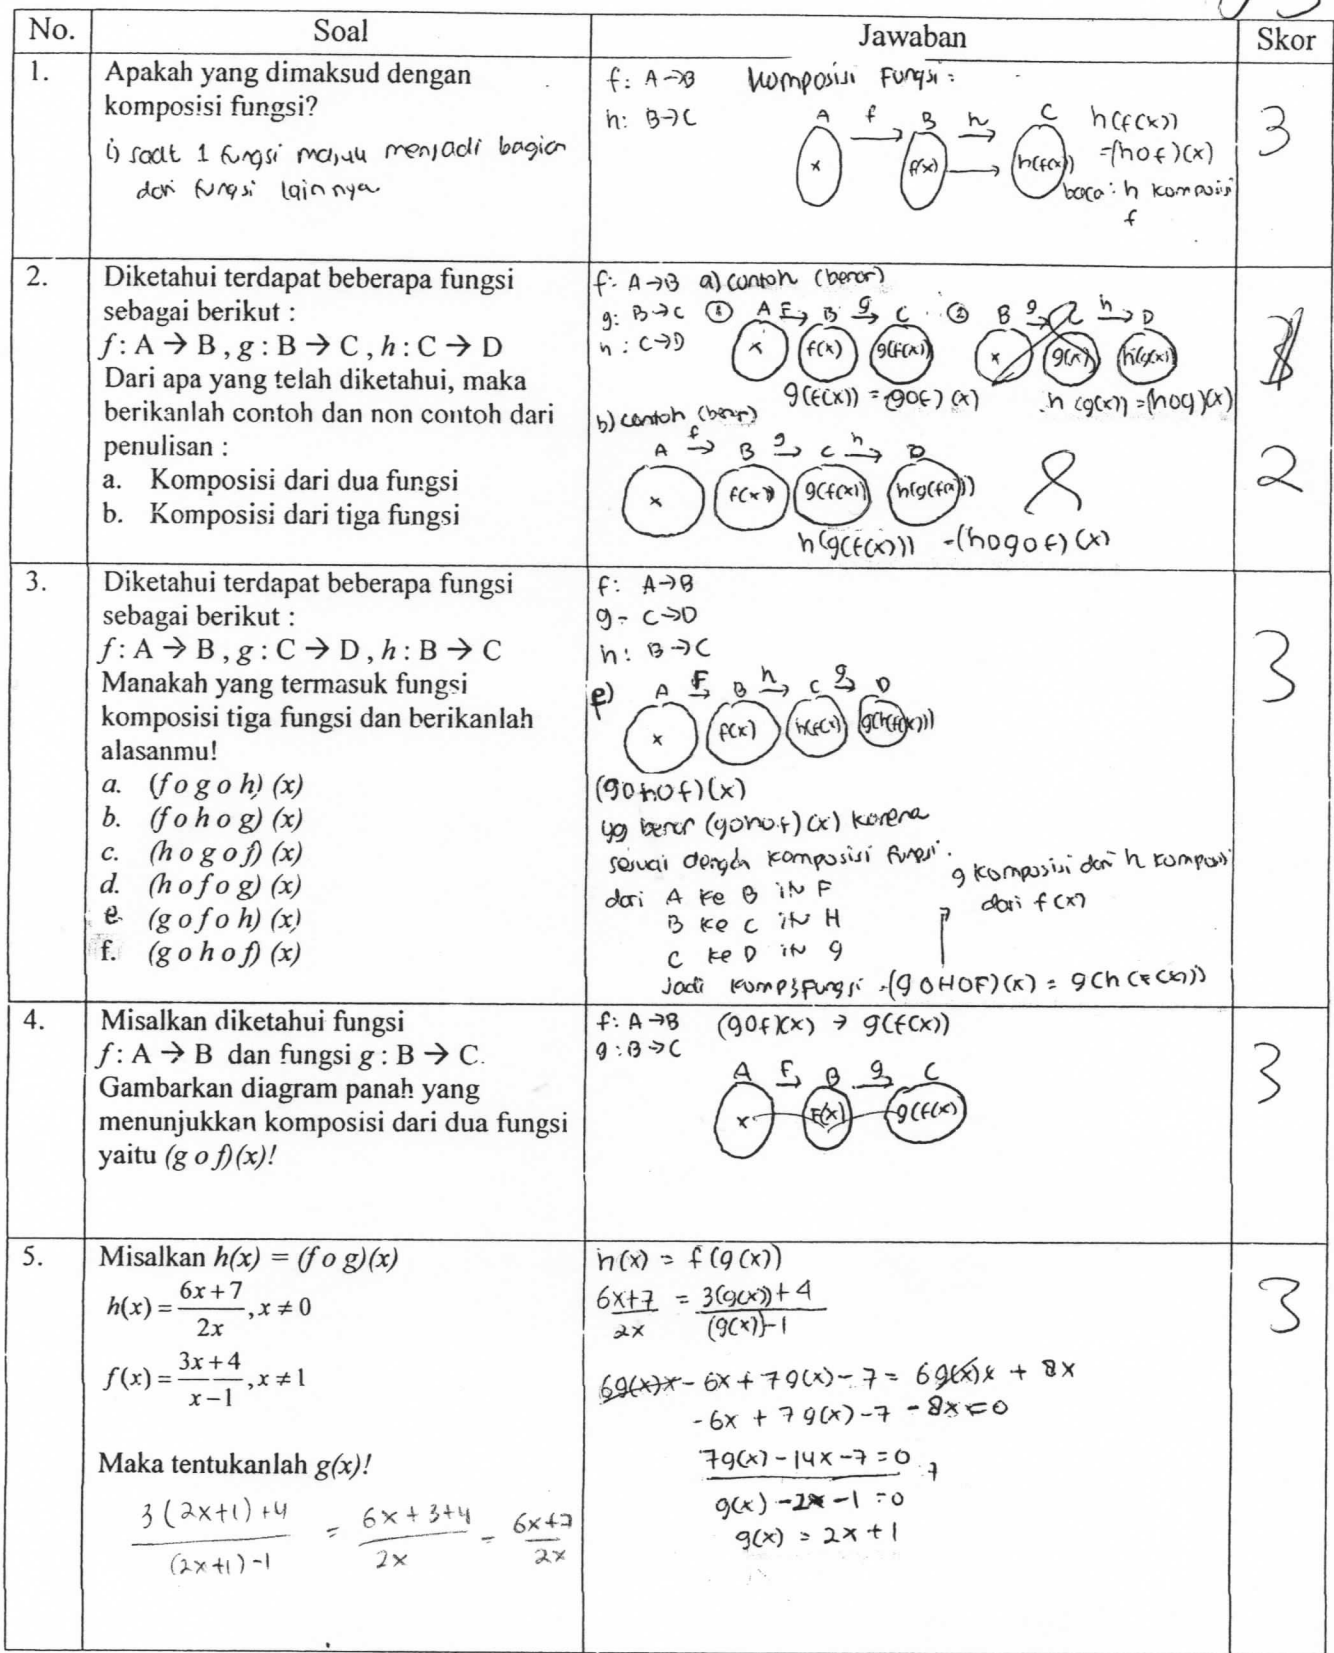 No. Soal Jawaban Skor
1. Apakah yang dimaksud dengan
komposisi fungsi?
i) saat 1 fungsi masuk menjadi bagian
dari fungsi lainnya
f: A→B Komposisi Fungsi:
h: B→C
A f B h C
x f(x) h(f(x))
h(f(x))
=(hof)(x)
baca: h komposisi
f
3
2. Diketahui terdapat beberapa fungsi
sebagai berikut :
f : A → B , g : B → C , h : C → D
Dari apa yang telah diketahui, maka
berikanlah contoh dan non contoh dari
penulisan :
a. Komposisi dari dua fungsi
b. Komposisi dari tiga fungsi
f: A→B a) contoh (benar)
g: B→C ① A F B g C ② B g C h D
h : C→D x f(x) g(f(x)) x g(x) h(g(x))
g(f(x)) = (gof)(x) h(g(x)) = (hog)(x)
b) contoh (benar)
A f B g C h D
x f(x) g(f(x)) h(g(f(x)))
h(g(f(x))) = (hogof)(x)
2
3. Diketahui terdapat beberapa fungsi
sebagai berikut :
f : A → B , g : C → D , h : B → C
Manakah yang termasuk fungsi
komposisi tiga fungsi dan berikanlah
alasanmu!
a. (f o g o h) (x)
b. (f o h o g) (x)
c. (h o g o f) (x)
d. (h o f o g) (x)
e. (g o f o h) (x)
f. (g o h o f) (x)
f: A→B
g: C→D
h: B→C
A F B h C g D
x f(x) h(f(x)) g(h(f(x)))
(gohof)(x)
yg benar (gohof)(x) karena
sesuai dengan komposisi fungsi.
dari A ke B IN F
B ke C IN H
C ke D IN g
g komposisi dari h komposisi
dari f(x)
Jadi Komp3Fungsi = (gOHOF)(x) = g(h(F(x)))
3
4. Misalkan diketahui fungsi
f : A → B dan fungsi g : B → C.
Gambarkan diagram panah yang
menunjukkan komposisi dari dua fungsi
yaitu (g o f)(x)!
f: A→B (gof)(x) → g(f(x))
g: B→C
A F B g C
x F(x) g(f(x))
3
5. Misalkan h(x) = (f o g)(x)
h(x) = (6x+7)/2x, x ≠ 0
f(x) = (3x+4)/(x−1), x ≠ 1
Maka tentukanlah g(x)!
(3(2x+1)+4)/((2x+1)-1) = (6x+3+4)/2x = (6x+7)/2x
h(x) = f(g(x))
(6x+7)/2x = (3(g(x))+4)/((g(x))-1)
6g(x)x - 6x + 7g(x) - 7 = 6g(x)x + 8x
-6x + 7g(x) - 7 - 8x = 0
7g(x) - 14x - 7 = 0 :7
g(x) - 2x - 1 = 0
g(x) = 2x + 1
3